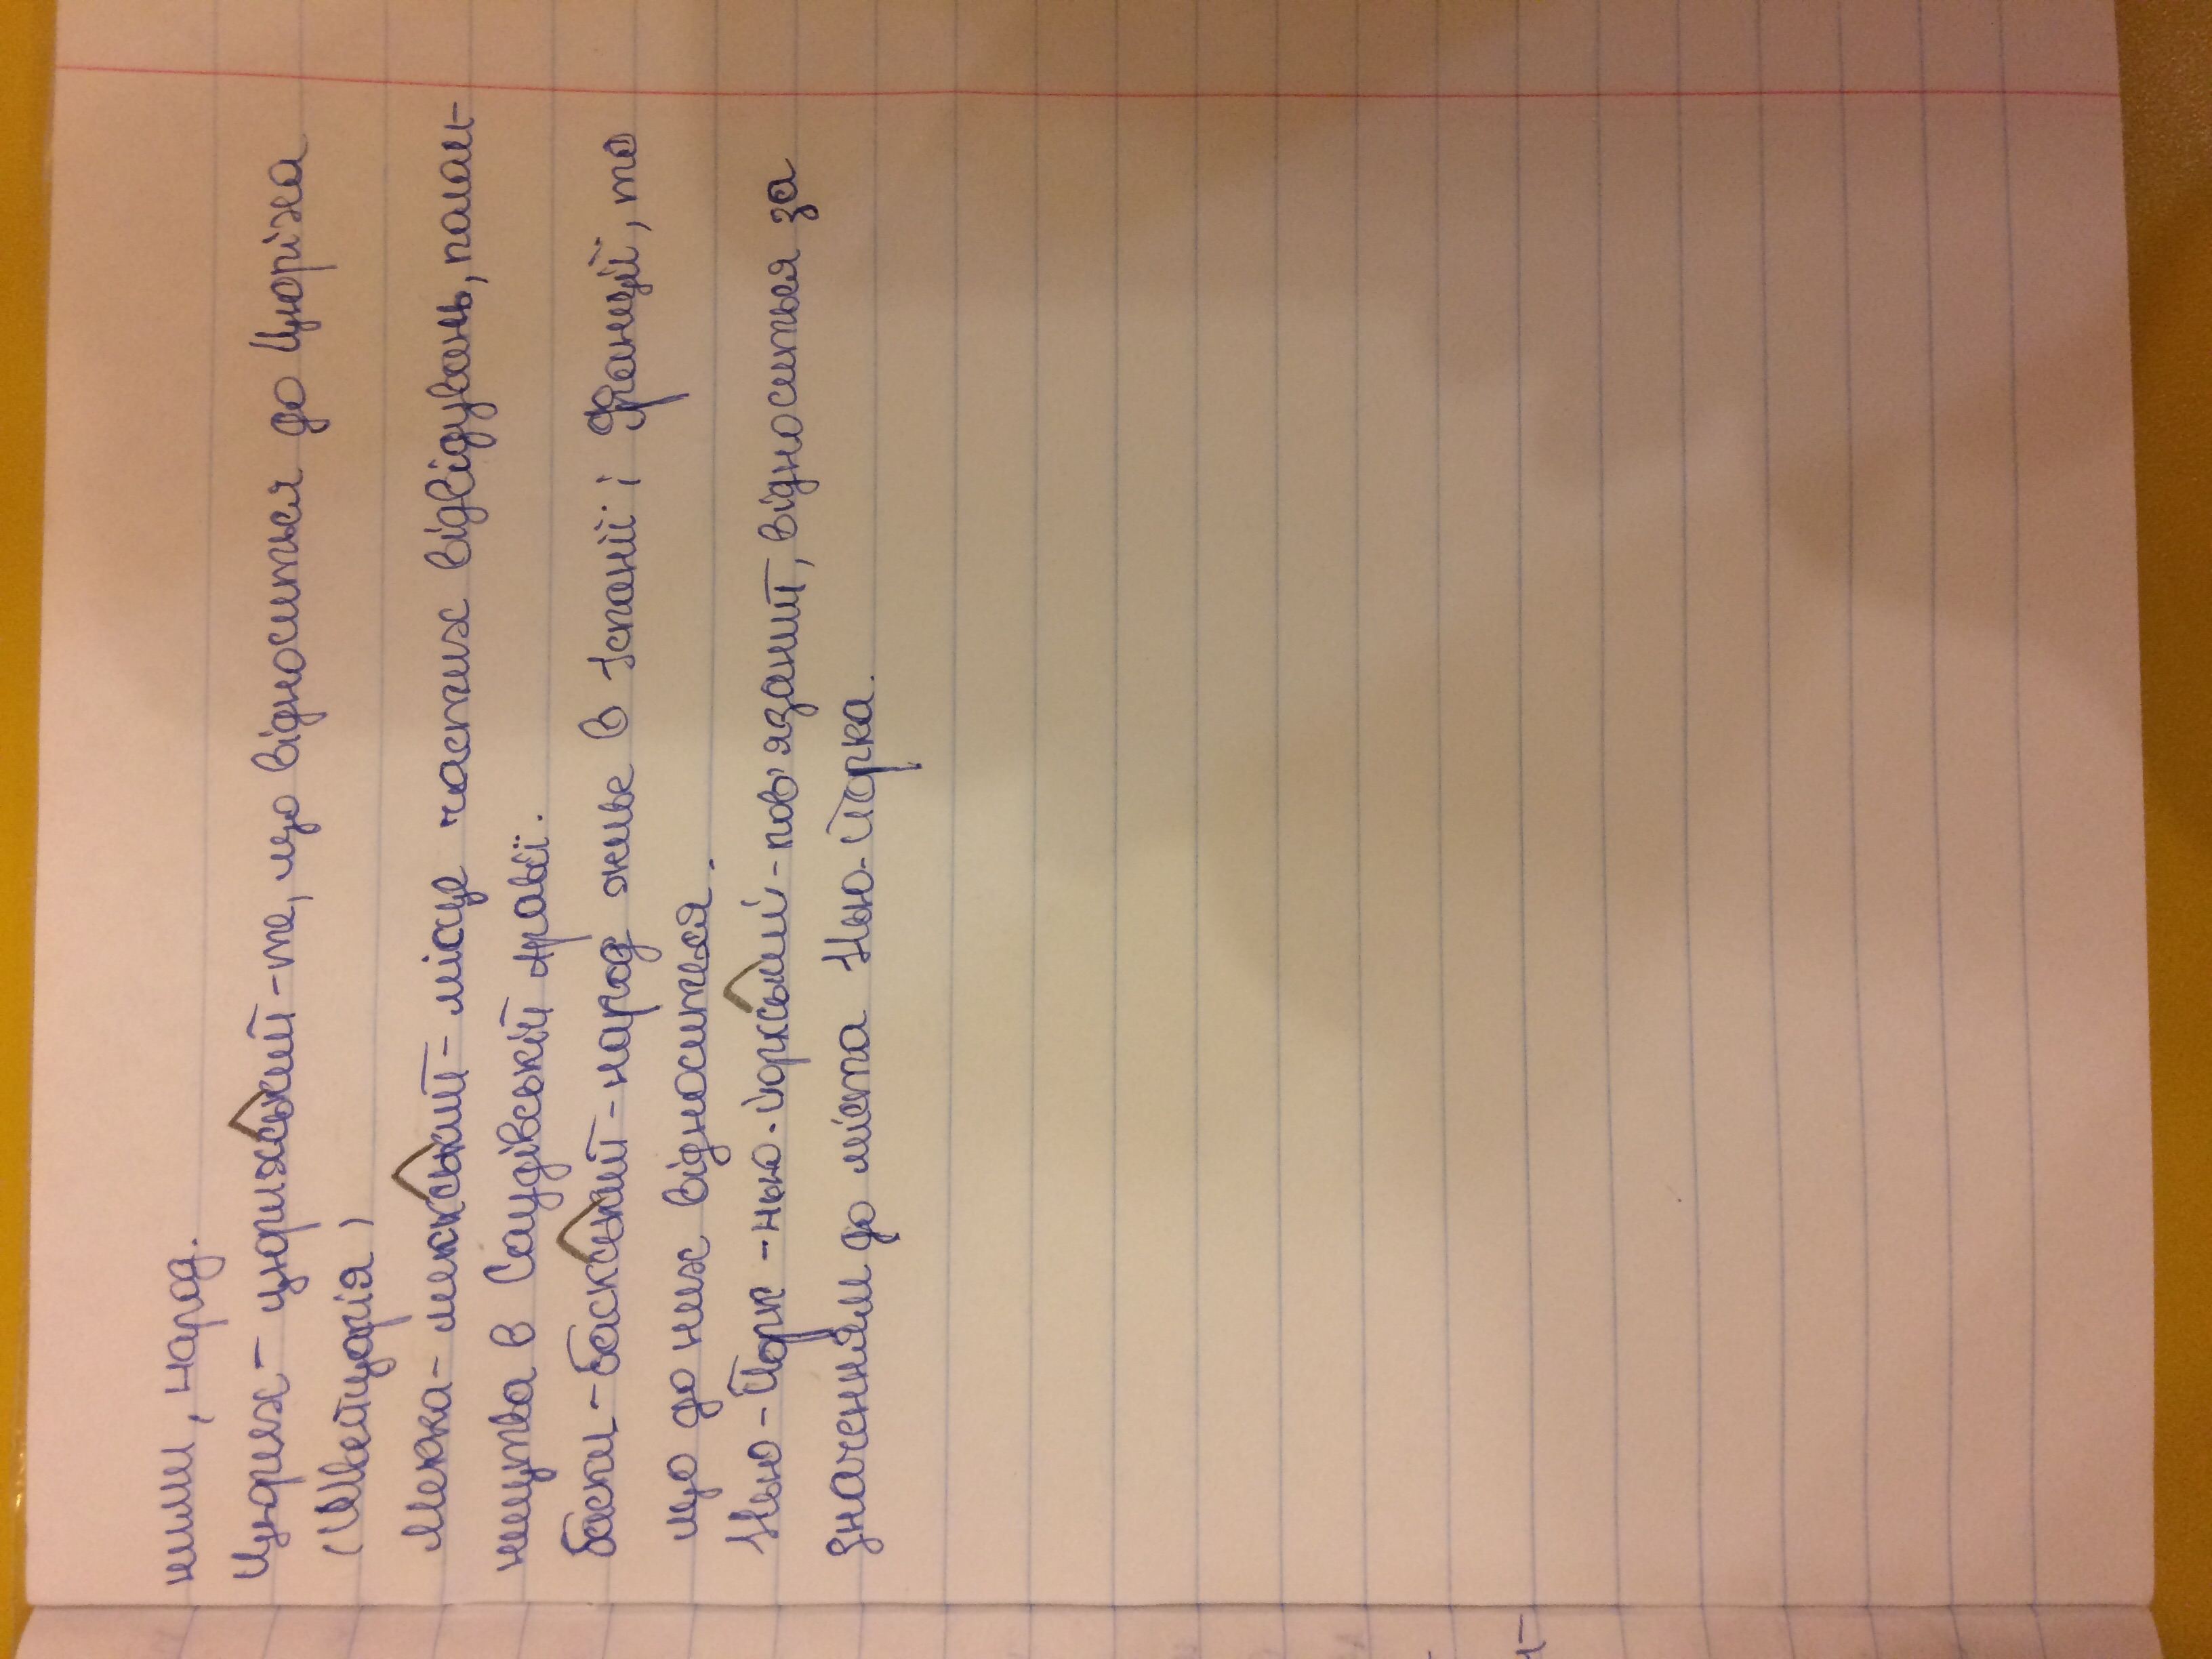 ними, народ.
Цюрих - цюрихський - те, що відноситься до Цюріха
(Швейцарія)
Мекка - меккський - місце частих відвідувань, палом-
ництва в Саудівській Аравії.
Баски - баскський - народ живе в Іспанії і Франції, то
що до них відноситься.
Нью-Йорк - нью-йоркський - пов'язаний, відноситься за
значенням до міста Нью-Йорка.